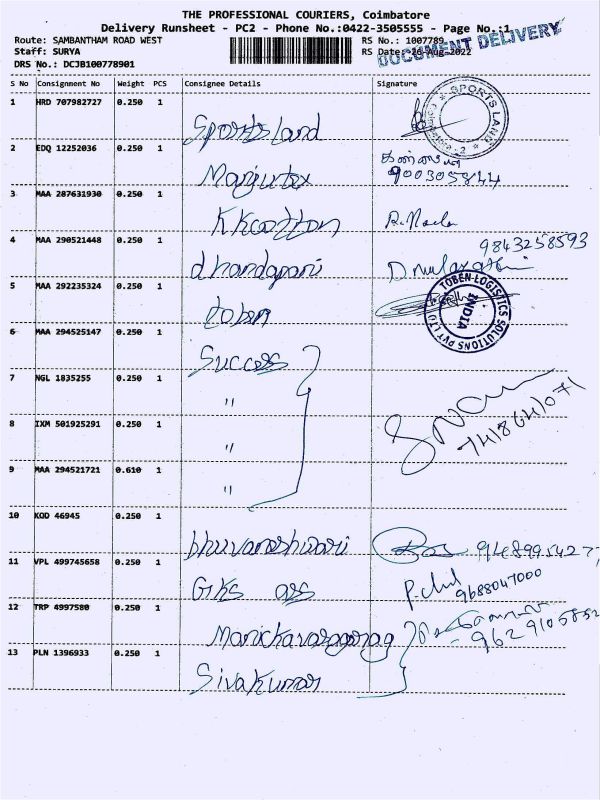 THE PROFESSIONAL COURIERS, Coimbatore
Delivery Runsheet - PC2 - Phone No.:0422-3505555 - Page No.:1
Route: SAMBANTHAM ROAD WEST RS No.: 1007789
Staff: SURYA RS Date: 26-Aug-2022
DOCUMENT DELIVERY
DRS No.: DCJB100778901
S No Consignment No Weight PCS Consignee Details Signature
1 HRD 707982727 0.250 1 Sportsland
SPORTS LAND
2 EDQ 12252036 0.250 1
3 MAA 287631930 0.250 1
4 MAA 290521448 0.250 1 dhandapani
9843258593
5 MAA 292235324 0.250 1 toben
TOBEN LOGISTICS SOLUTIONS PVT LTD
INDIA
6 MAA 294525147 0.250 1 Success
7 NGL 1835255 0.250 1 "
8 IXM 501925291 0.250 1 "
7418641071
9 MAA 294521721 0.610 1 "
10 KOD 46945 0.250 1 bhuvaneshwari
11 VPL 499745658 0.250 1 GKS
9688047000
12 TRP 4997580 0.250 1
13 PLN 1396933 0.250 1 Sivakumar